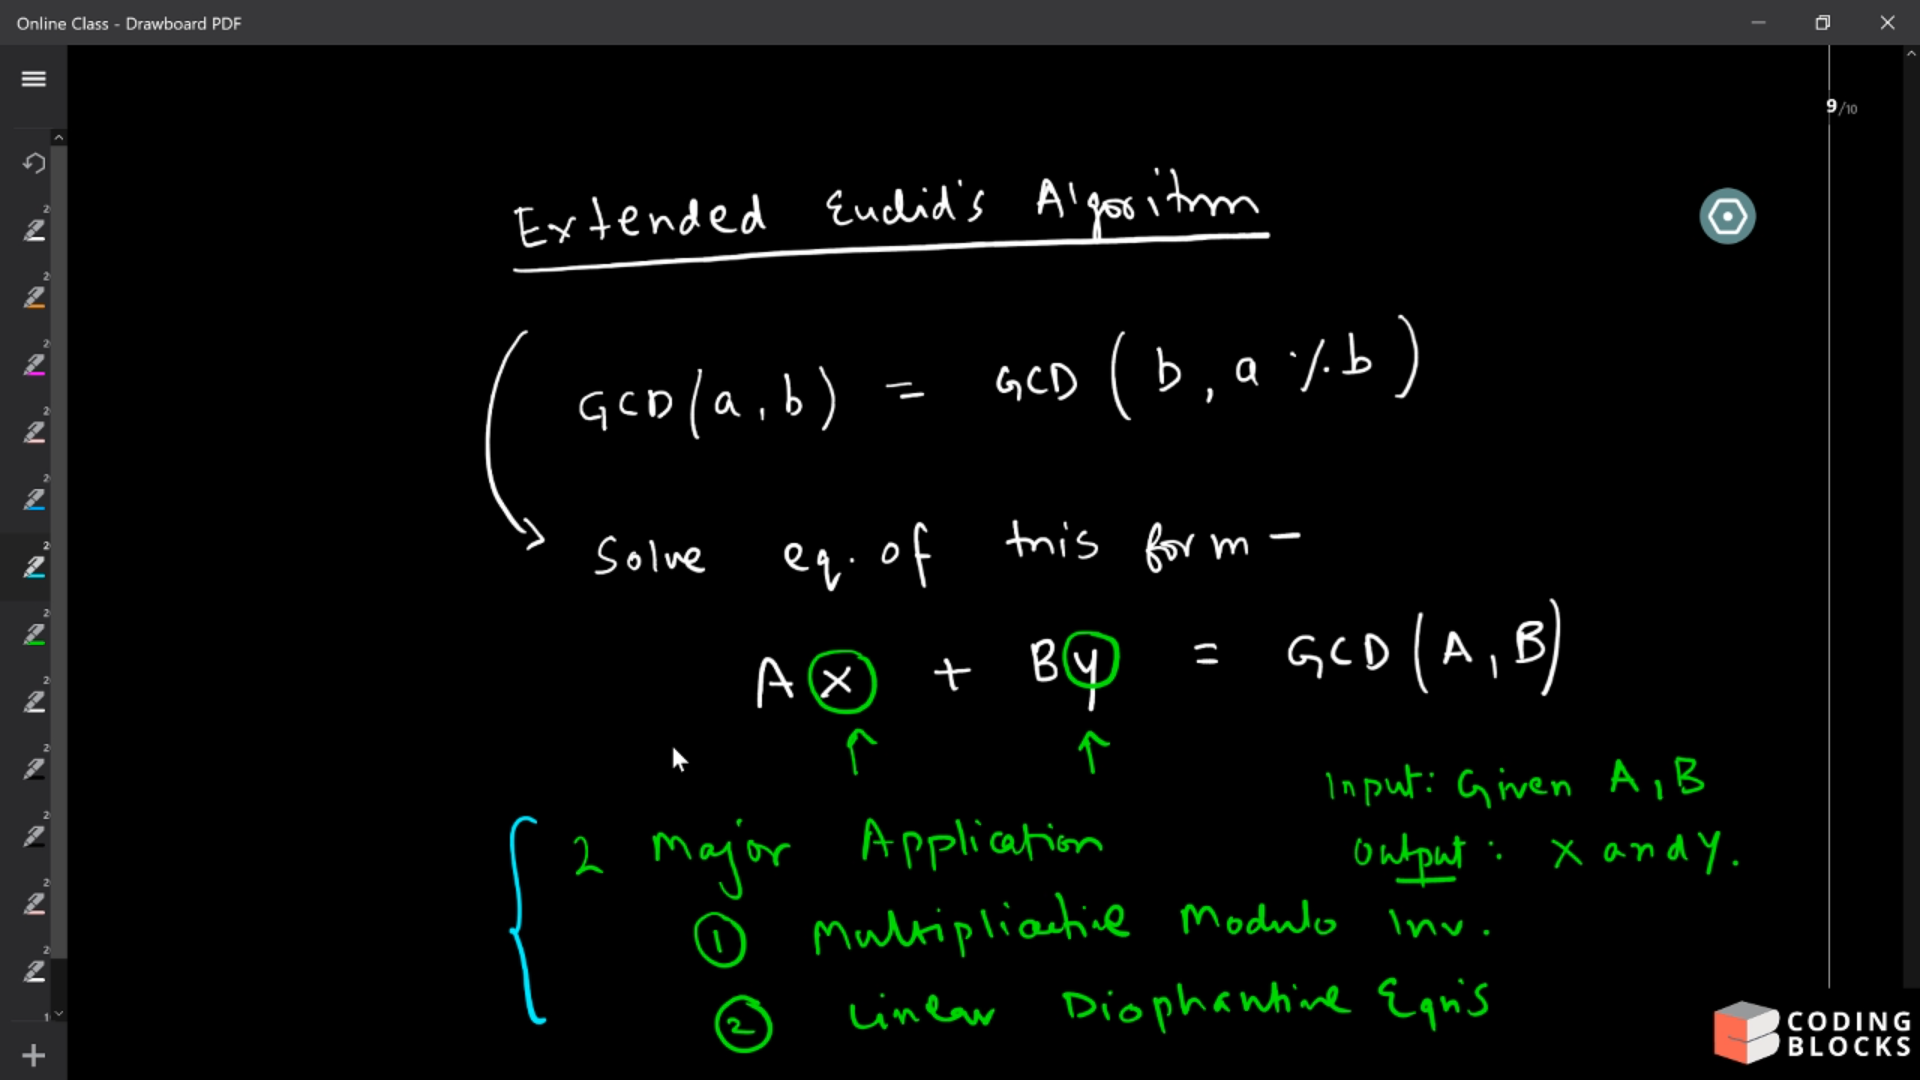 Online Class - Drawboard PDF
9/10
Extended Euclid's Algorithm
GCD(a, b) = GCD(b, a % b)
Solve eq. of this form -
Ax + By = GCD(A, B)
Input: Given A, B
Output: X and Y.
2 Major Application
① Multiplicative Modulo Inv.
② Linear Diophantine Eqn's
CODING
BLOCKS